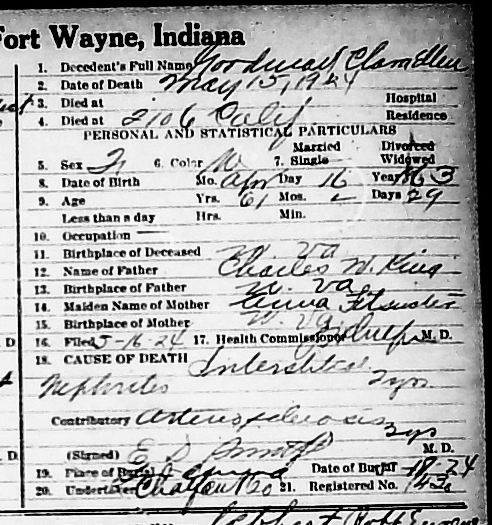 Fort Wayne, Indiana
1. Decedent's Full Name Goodman Clara Ellen
2. Date of Death May 15, 1924
3. Died at Hospital
4. Died at 2106 Calif Residence
PERSONAL AND STATISTICAL PARTICULARS
Married Divorced
5. Sex F 6. Color W 7. Single Widowed
8. Date of Birth Mo. Apr Day 16 Year 1863
9. Age Yrs. 61 Mos. Days 29
Less than a day Hrs. Min.
10. Occupation —
11. Birthplace of Deceased W. Va
12. Name of Father Charles W. King
13. Birthplace of Father W. Va
14. Maiden Name of Mother Anna
15. Birthplace of Mother W. Va
16. Filed 5-16-24 17. Health Commissioner M. D.
18. CAUSE OF DEATH Interstitial
Nephritis 2 yrs
Contributory Arterio sclerosis
3 yrs
(Signed) E S M. D.
19. Place of Burial Date of Burial 24
20. Undertaker Co 21. Registered No.